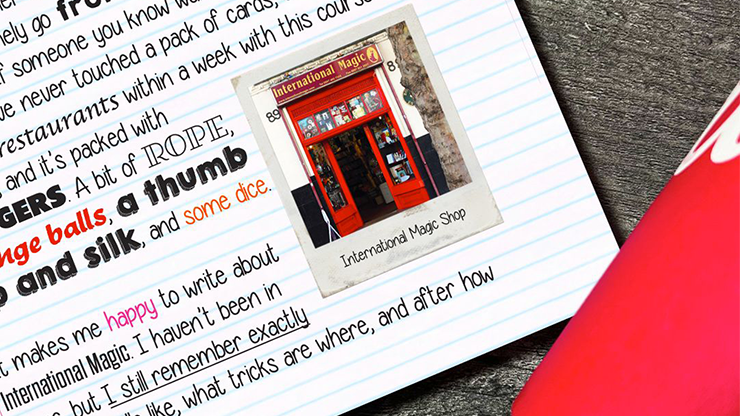 from
ely go
f someone you know wa
ve never touched a pack of cards,
restaurants within a week with this cours
, and it's packed with
GERS. A bit of ROPE,
nge balls, a thumb
p and silk, and some dice.
International Magic
89
8
International Magic Shop
t makes me happy to write about
International Magic. I haven't been in
, but I still remember exactly
s like, what tricks are where, and after how